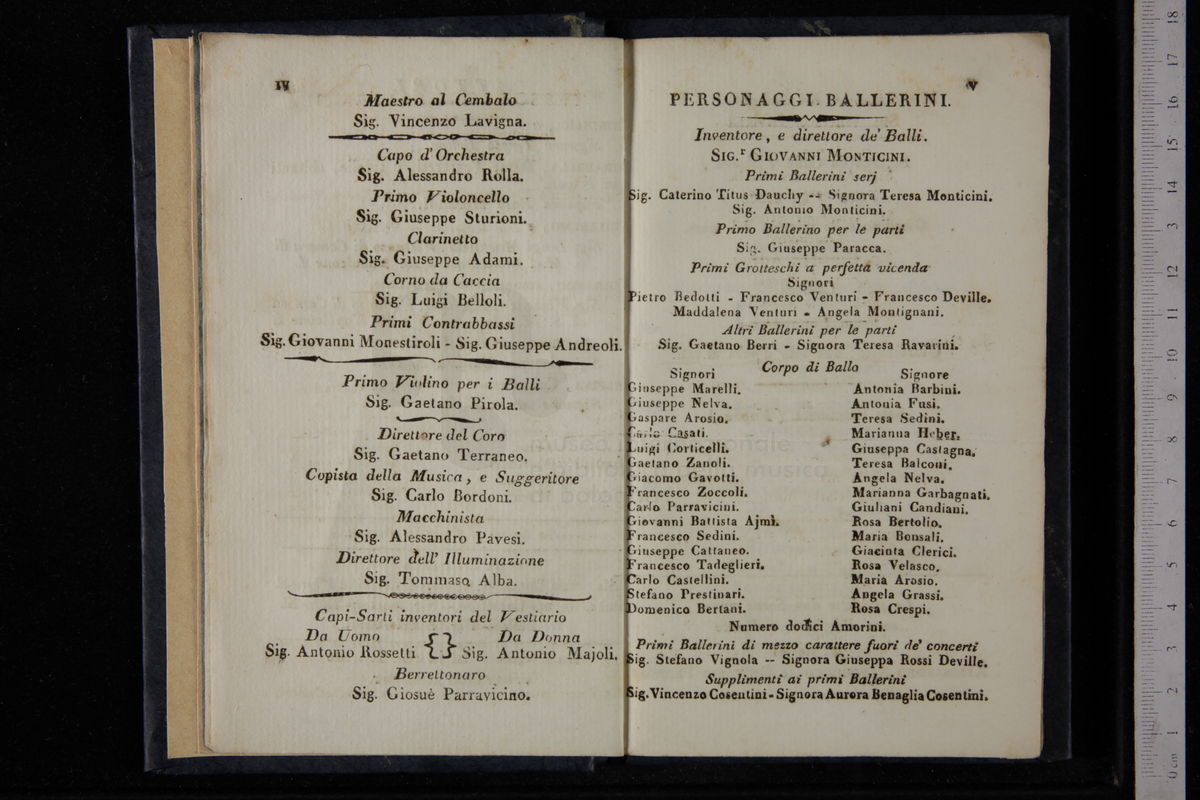 IV
Maestro al Cembalo
Sig. Vincenzo Lavigna.
Capo d'Orchestra
Sig. Alessandro Rolla.
Primo Violoncello
Sig. Giuseppe Sturioni.
Clarinetto
Sig. Giuseppe Adami.
Corno da Caccia
Sig. Luigi Belloli.
Primi Contrabbassi
Sig. Giovanni Monestiroli - Sig. Giuseppe Andreoli.
Primo Violino per i Balli
Sig. Gaetano Pirola.
Direttore del Coro
Sig. Gaetano Terraneo.
Copista della Musica, e Suggeritore
Sig. Carlo Bordoni.
Macchinista
Sig. Alessandro Pavesi.
Direttore dell' Illuminazione
Sig. Tommaso Alba.
Capi-Sarti inventori del Vestiario
Da Uomo Da Donna
Sig. Antonio Rossetti Sig. Antonio Majoli.
Berrettonaro
Sig. Giosuè Parravicino.
V
PERSONAGGI BALLERINI.
Inventore, e direttore de' Balli.
SIG.r GIOVANNI MONTICINI.
Primi Ballerini serj
Sig. Caterino Titus Dauchy -- Signora Teresa Monticini.
Sig. Antonio Monticini.
Primo Ballerino per le parti
Sig. Giuseppe Paracca.
Primi Grotteschi a perfetta vicenda
Signori
Pietro Bedotti - Francesco Venturi - Francesco Deville.
Maddalena Venturi - Angela Montignani.
Altri Ballerini per le parti
Sig. Gaetano Berri - Signora Teresa Ravarini.
Corpo di Ballo
Signori Signore
Giuseppe Marelli. Antonia Barbini.
Giuseppe Nelva. Antonia Fusi.
Gaspare Arosio. Teresa Sedini.
Carlo Casati. Marianna Heber.
Luigi Corticelli. Giuseppa Castagna.
Gaetano Zanoli. Teresa Balconi.
Giacomo Gavotti. Angela Nelva.
Francesco Zoccoli. Marianna Garbagnati.
Carlo Parravicini. Giuliani Candiani.
Giovanni Battista Ajmi. Rosa Bertolio.
Francesco Sedini. Maria Bonsali.
Giuseppe Cattaneo. Giacinta Clerici.
Francesco Tadeglieri. Rosa Velasco.
Carlo Castellini. Maria Arosio.
Stefano Prestinari. Angela Grassi.
Domenico Bertani. Rosa Crespi.
Numero dodici Amorini.
Primi Ballerini di mezzo carattere fuori de' concerti
Sig. Stefano Vignola -- Signora Giuseppa Rossi Deville.
Supplimenti ai primi Ballerini
Sig. Vincenzo Cosentini - Signora Aurora Benaglia Cosentini.
0 cm 1 2 3 4 5 6 7 8 9 10 11 12 13 14 15 16 17 18